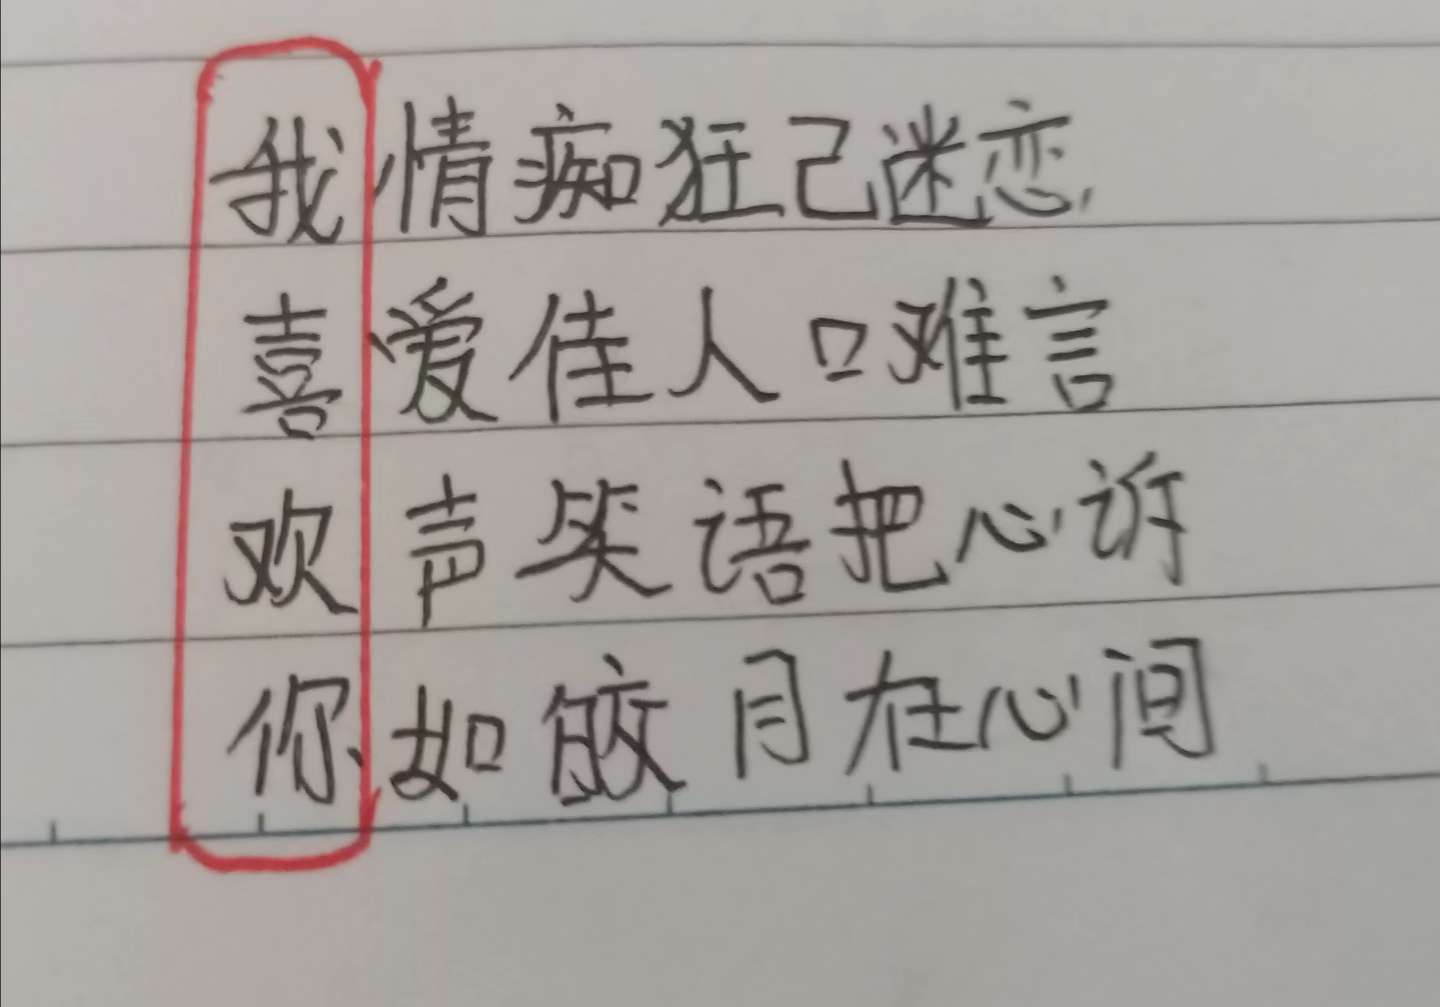 我情痴狂己迷恋
喜爱佳人口难言
欢声笑语把心诉
你如皎月在心间